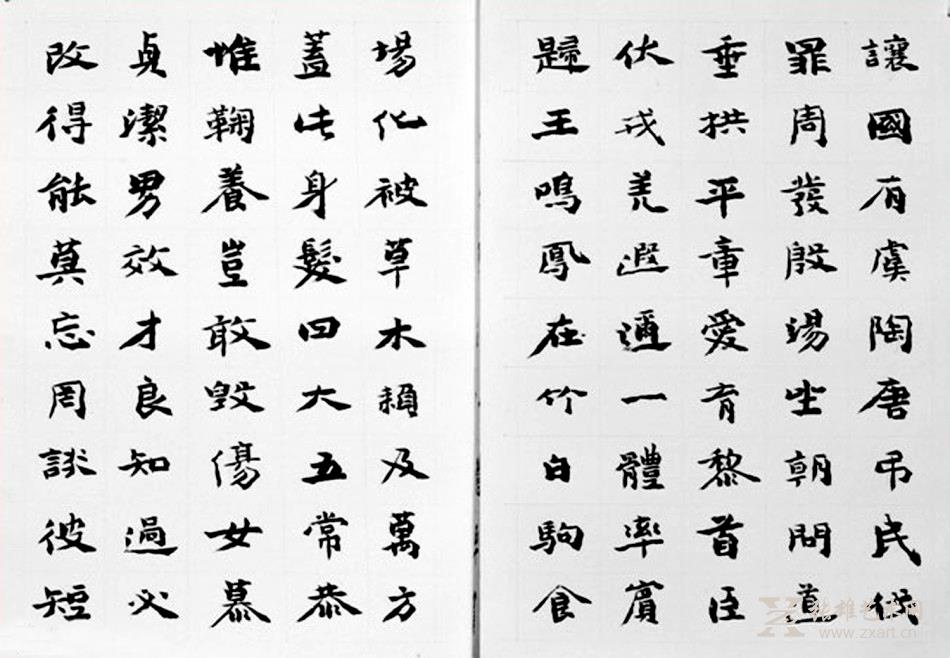 讓國有虞陶唐弔民伐
罪周發殷湯坐朝問道
垂拱平章愛育黎首臣
伏戎羌遐邇一體率賓
歸王鳴鳳在竹白駒食
場化被草木賴及萬方
蓋此身髮四大五常恭
惟鞠養豈敢毀傷女慕
貞潔男效才良知過必
改得能莫忘罔談彼短
张雄艺术网
www.zxart.cn